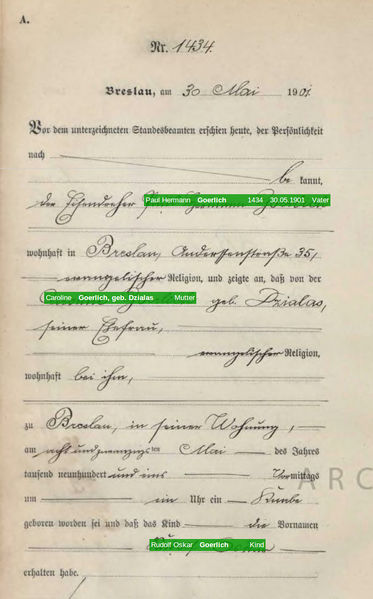 A.
Nr. 1434.
Breslau, am 30 Mai 1901.
Vor dem unterzeichneten Standesbeamten erschien heute, der Persönlichkeit
nach be kannt,
der Eisendreher Paul Hermann Goerlich 1434 30.05.1901 Vater
wohnhaft in Breslau, Anderssenstraße 35,
evangelischer Religion, und zeigte an, daß von der
Caroline Goerlich, geb. Dzialas Mutter geb. Dzialas,
seiner Ehefrau,
evangelischer Religion,
wohnhaft bei ihm,
zu Breslau, in seiner Wohnung,
am acht und zwanzigsten Mai des Jahres
tausend neunhundert und eins Vormittags
um ein Uhr ein Knabe
geboren worden sei und daß das Kind die Vornamen
Rudolf Oskar Goerlich Kind
erhalten habe.
ARC